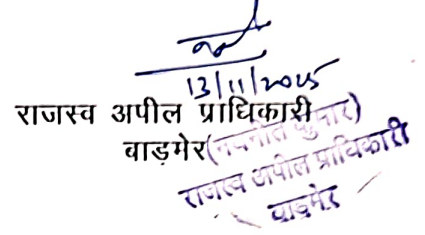 13/11/2025
राजस्व अपील प्राधिकारी
बाड़मेर
(नवनीत कुमार)
राजस्व अपील प्राधिकारी
बाड़मेर